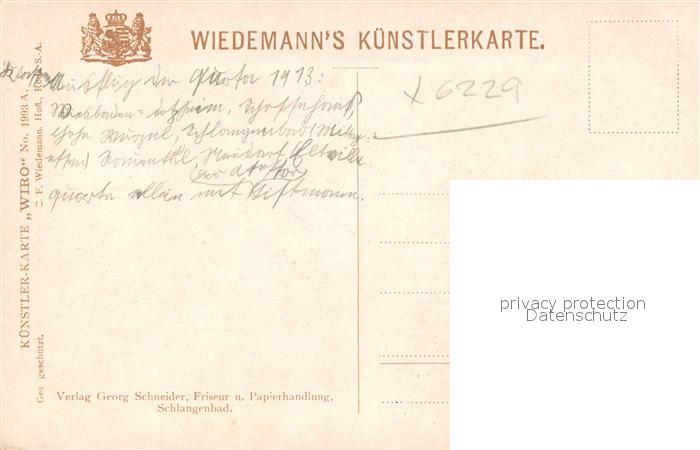 WIEDEMANN'S KÜNSTLERKARTE.
KÜNSTLER-KARTE „WIRO" No. 1993 A.
C. F. Wiedemann, Hofl., R. S. A.
Ges geschützt.
Ausflug der Quarta 1913:
Wiesbaden - Dotzheim, Schiersteiner
hohe Wurzel, Schlangenbad (Mittag-
essen) Rauenthal, Neudorf, Eltville
quarta allein mit Hiftmann.
X 6229
privacy protection
Datenschutz
Verlag Georg Schneider, Friseur u. Papierhandlung,
Schlangenbad.